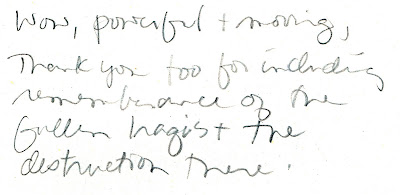 Wow, powerful + moving,
Thank you too for including
rememberance of the
Gullem tragist the
destruction there.